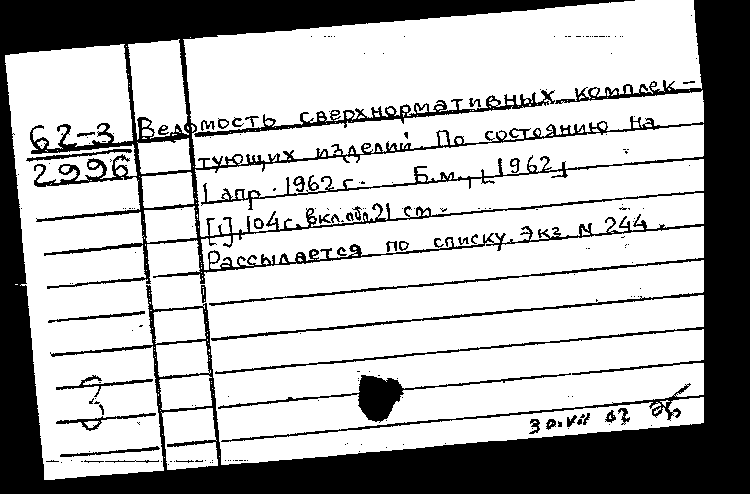 62-3
2996
Ведомость сверхнормативных комплек-
тующих изделий. По состоянию на
1 апр. 1962 г. Б.м., [1962]
[1], 104 с. вкл. обл. 21 см.
Рассылается по списку. Экз. N 244.
3
30.VII 62